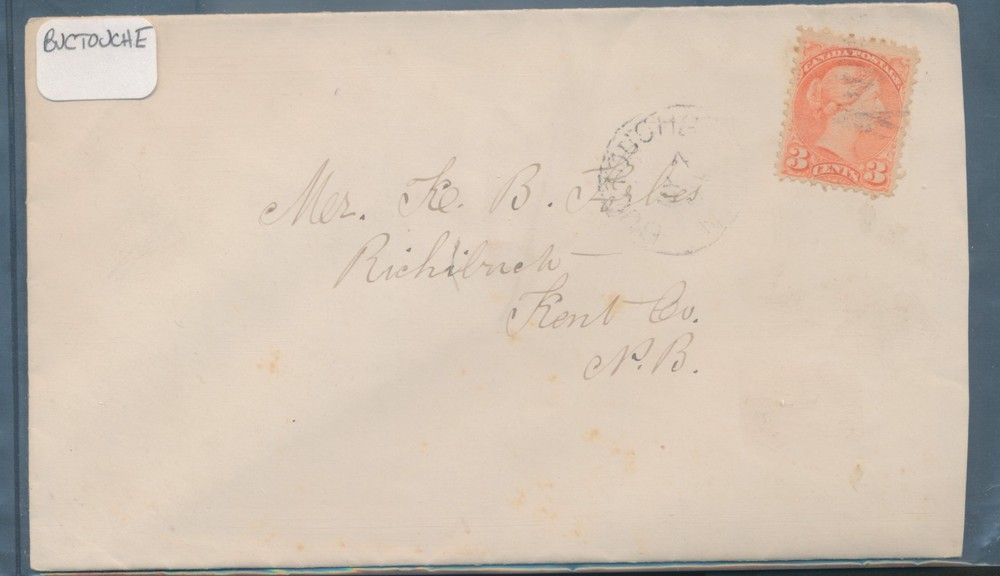 BUCTOUCHE
CANADA POSTAGE
3 CENTS 3
Mr. K. B. Forbes
Richibucto
Kent Co.
N.B.